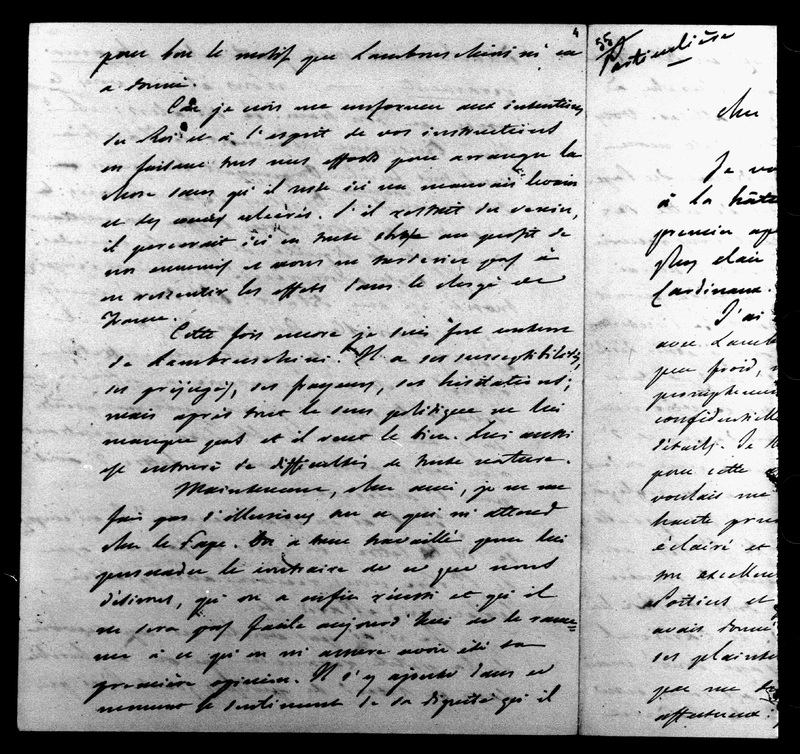 4
pour bon le motif que Lambruschini m'en
a donné.
Car je crois me conformer aux intentions
du Roi et à l'esprit de vos instructions
en faisant tous mes efforts pour arranger la
chose sans qu'il reste ici un mauvais levain
et des cœurs ulcérés. S'il restait du venin,
il percerait ici en toute chose au profit de
nos ennemis et nous ne tarderions pas à
en ressentir les effets dans le clergé de
France.
Cette fois encore je suis fort content
de Lambruschini. Il a ses susceptibilités,
ses préjugés, ses frayeurs, ses hésitations;
mais après tout le sens politique ne lui
manque pas et il veut le bien. Lui aussi
est entouré de difficultés de toute nature.
Maintenant, cher ami, je ne me
fais pas d'illusions sur ce qui m'attend
chez le Pape. On a tant travaillé pour lui
persuader le contraire de ce que nous
désirons, qu'on a enfin réussi et qu'il
ne sera pas facile aujourd'hui de le rame-
ner à ce qu'on m'assure avoir été sa
première opinion. Il s'y ajoute dans ce
moment le sentiment de sa dignité qu'il
55
Particulière
Cher
Je
à la hâte
premier
plus clair
Cardinaux.
J'ai
avec Lamb
peu froid,
confidentielle
détails. Je
pour cette
voulais me
haute
éclairé et
son excellen
Poitiers et
avais donné
ses plainte
que me
affectueux